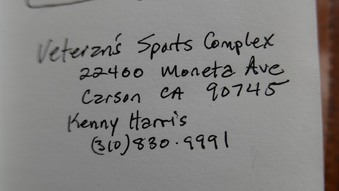 Veteran's Sports Complex
22400 Moneta Ave
Carson CA 90745
Kenny Harris
(310) 830-9991